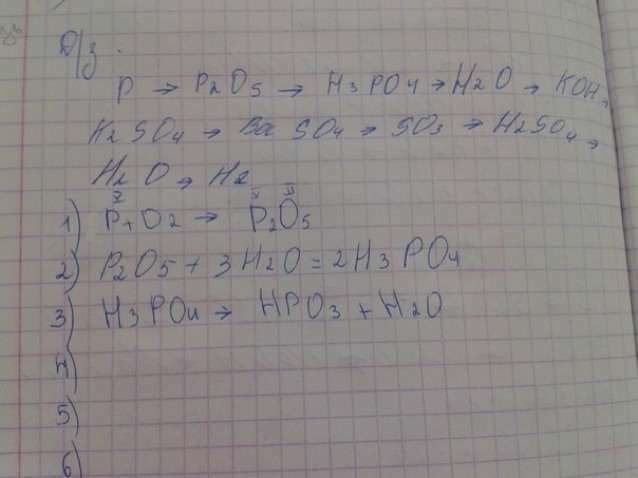 Д/з.
P → P2O5 → H3PO4 → H2O → KOH →
K2SO4 → BaSO4 → SO3 → H2SO4 →
H2O → H2
V V II
1) P + O2 → P2O5
2) P2O5 + 3H2O = 2H3PO4
3) H3PO4 → HPO3 + H2O
4)
5)
6)